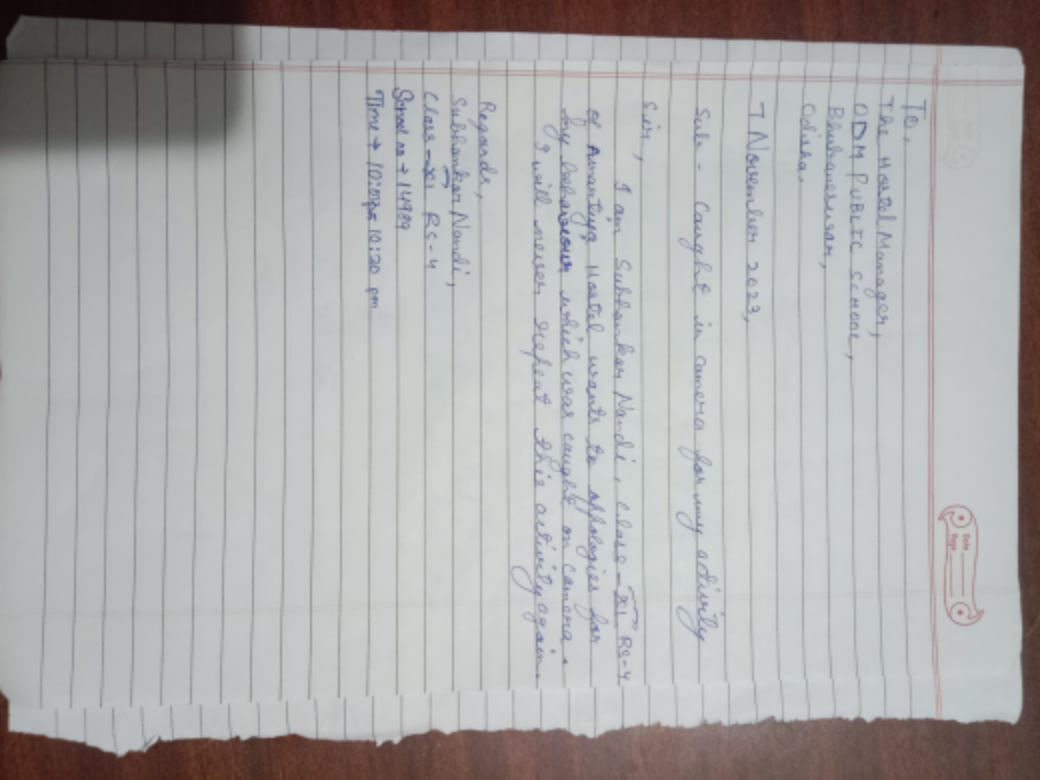 Date
Page
To,
The Hostel Manager,
ODM PUBLIC SCHOOL,
Bhubaneswar,
Odisha,
7 November 2023,
Sub - Caught in camera for my activity
Sir,
I am Subhankar Nandi, Class - XI RS-4
of Hostel wants to appologies for
my behaviour which was caught on camera.
I will never repeat this activity again.
Regards,
Subhankar Nandi,
Class - XI RS-4
School no → 14989
Time → 10:20 pm